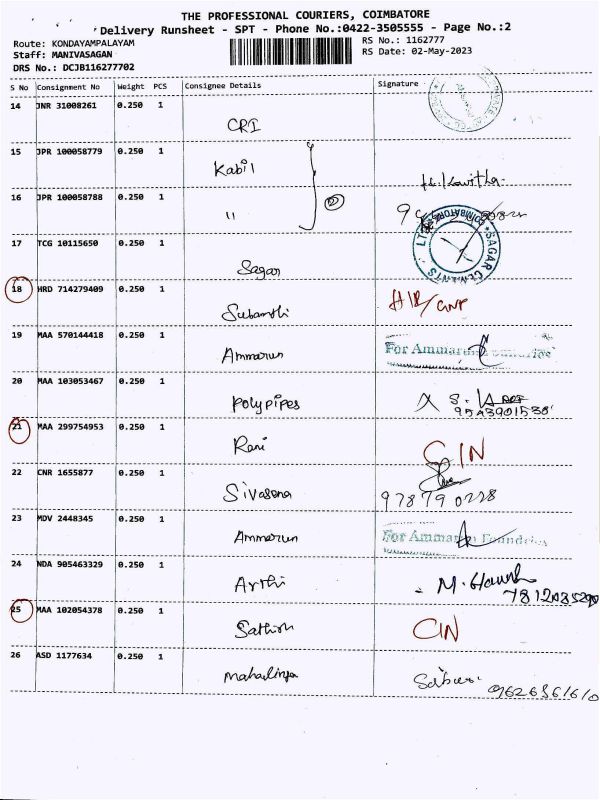 THE PROFESSIONAL COURIERS, COIMBATORE
Delivery Runsheet - SPT - Phone No.:0422-3505555 - Page No.:2
Route: KONDAYAMPALAYAM
RS No.: 1162777
Staff: MANIVASAGAN
RS Date: 02-May-2023
DRS No.: DCJB116277702
S No Consignment No Weight PCS Consignee Details Signature
14 JNR 31008261 0.250 1
CRI
15 JPR 100058779 0.250 1
Kabil
H. Kavitha
16 JPR 100058788 0.250 1
" 2
17 TCG 10115650 0.250 1
Sagar
SAGAR CEMENTS LTD COIMBATORE
18 HRD 714279409 0.250 1
19 MAA 570144418 0.250 1
Ammarun
For Ammarun Foundries
20 MAA 103053467 0.250 1
Polypipes
21 MAA 299754953 0.250 1
Rani
CIN
22 CNR 1655877 0.250 1
Sivasena
23 MDV 2448345 0.250 1
Ammarun
For Ammarun Foundries
24 NDA 905463329 0.250 1
Arthi
25 MAA 102054378 0.250 1
CIN
26 ASD 1177634 0.250 1